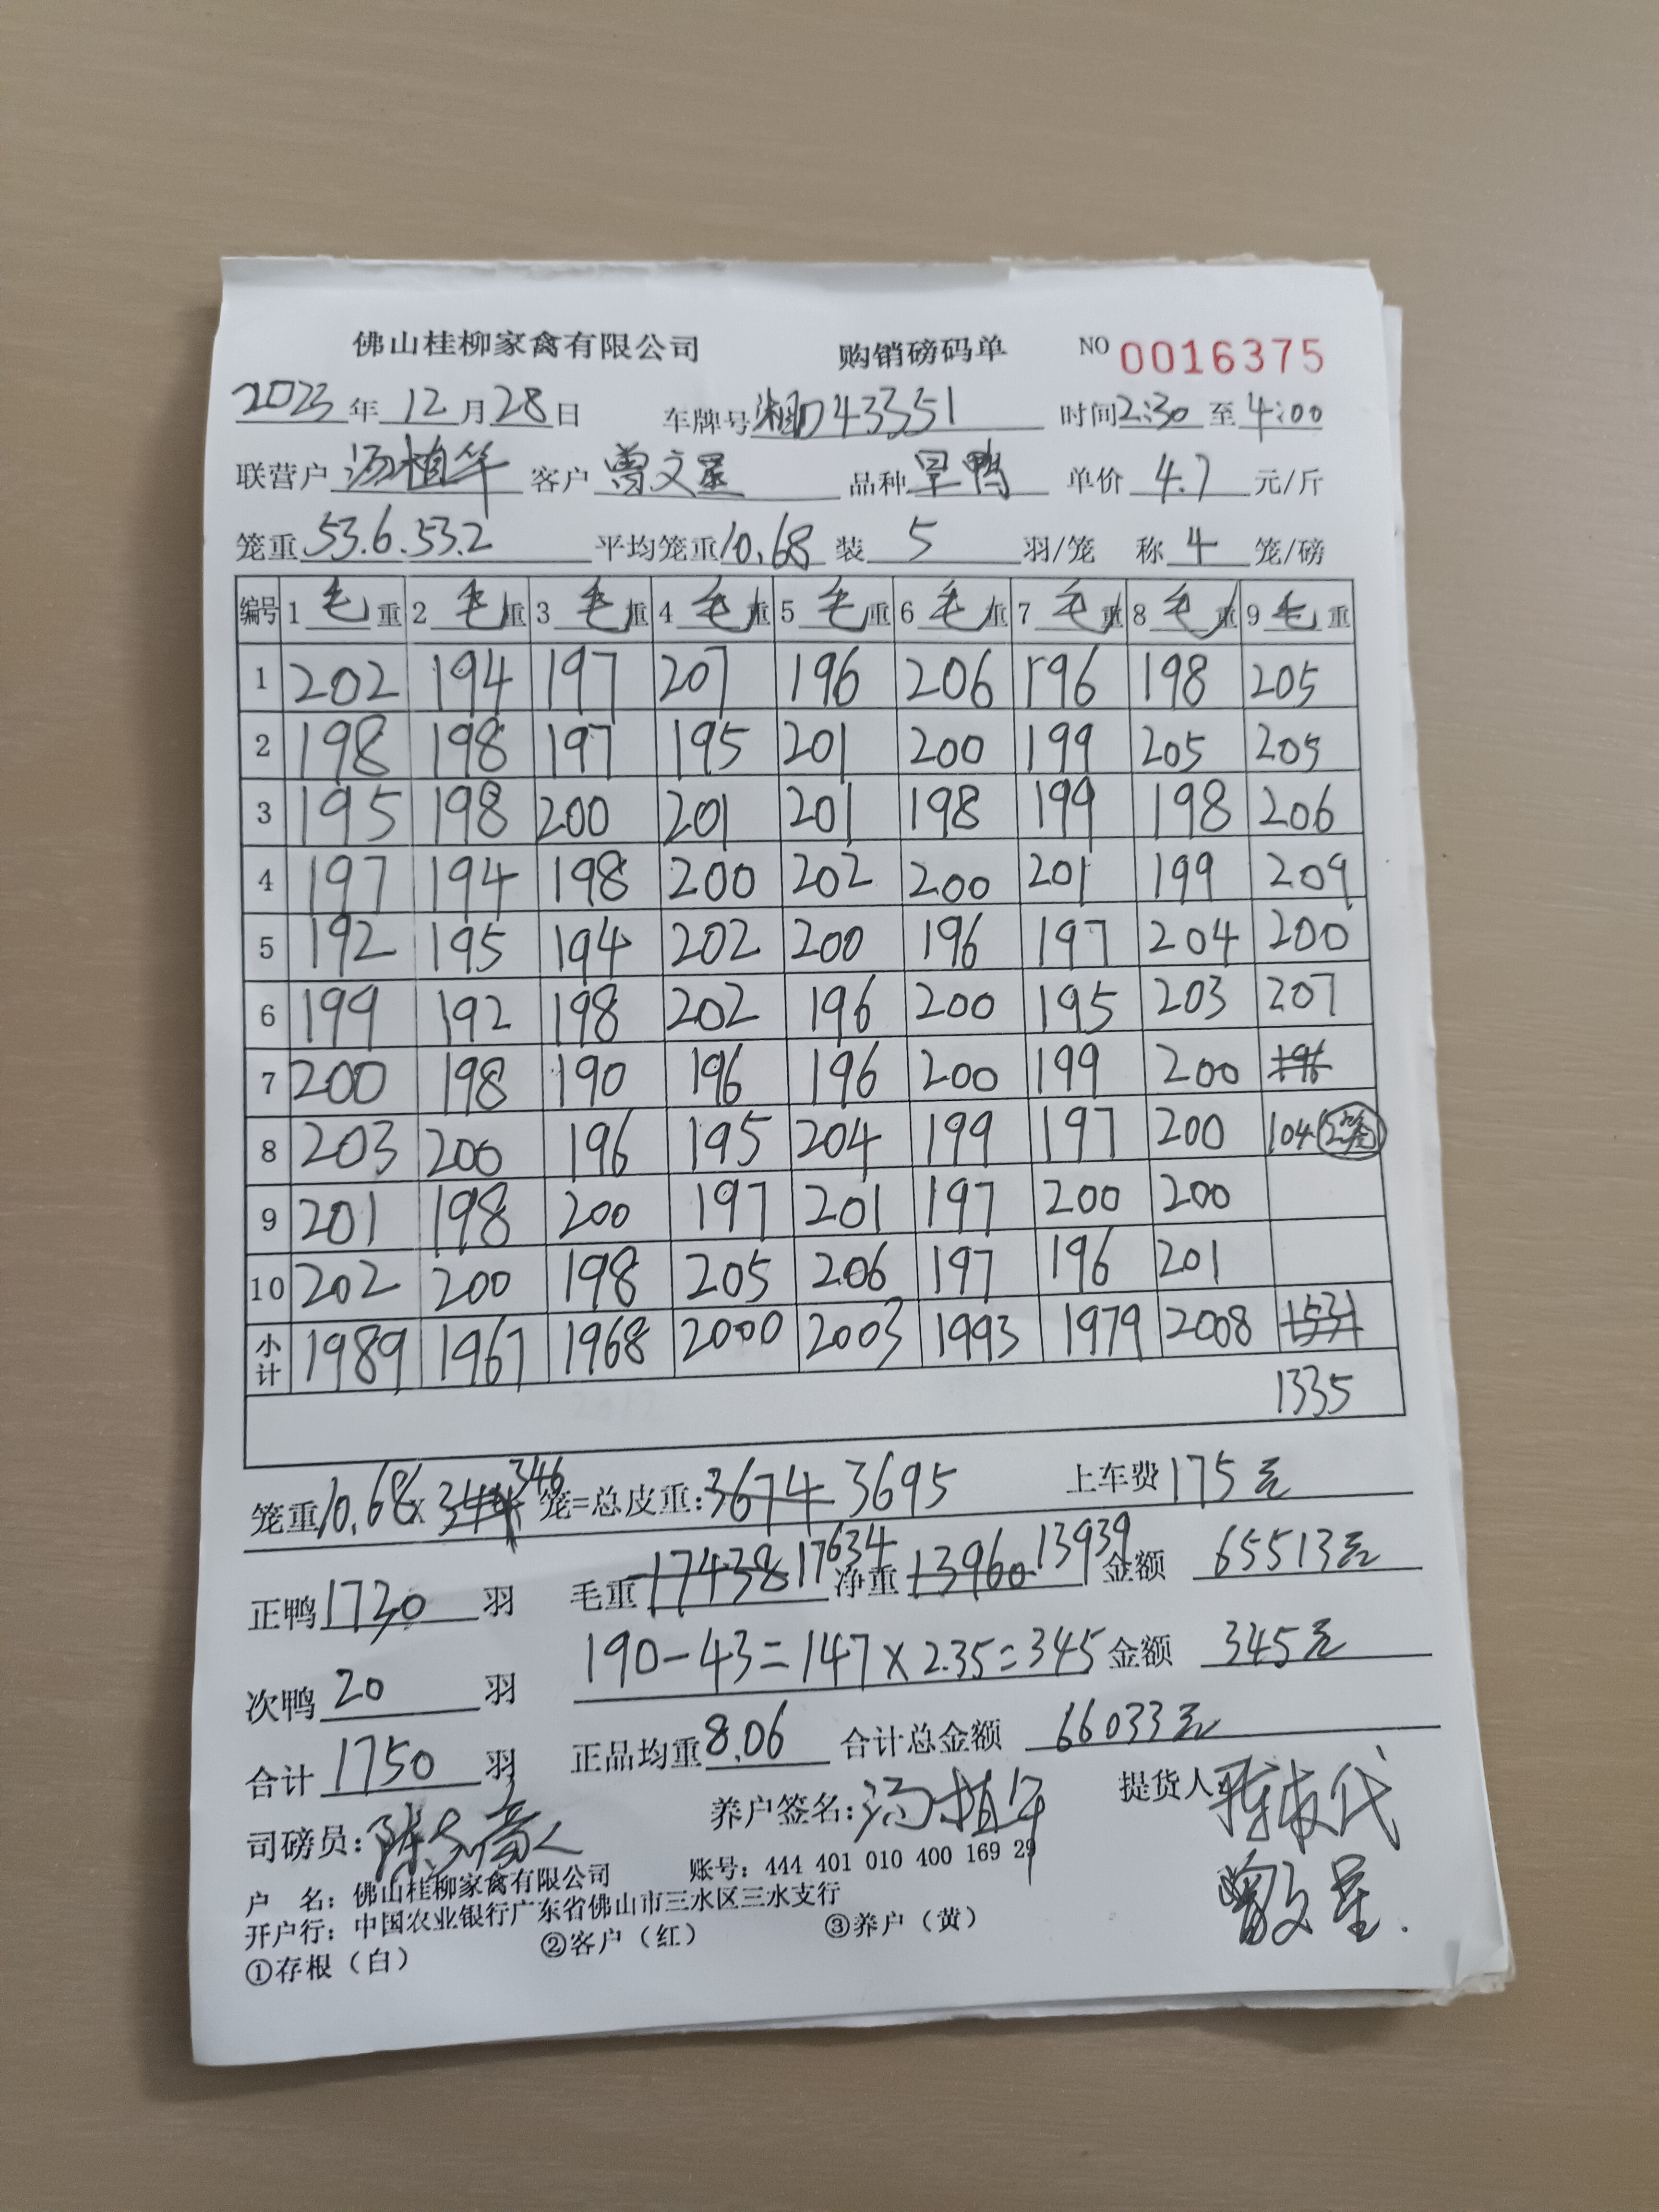 佛山桂柳家禽有限公司 购销磅码单 NO 0016375
2023年12月28日 车牌号湘D43351 时间2:30至4:00
联营户汤植华 客户曾文星 品种旱鸭 单价4.7元/斤
笼重53.6.53.2 平均笼重10.68 装5羽/笼 称4笼/磅
编号 1毛重 2毛重 3毛重 4毛重 5毛重 6毛重 7毛重 8毛重 9毛重
1 202 194 197 207 196 206 196 198 205
2 198 198 197 195 201 200 199 205 205
3 195 198 200 201 201 198 199 198 206
4 197 194 198 200 202 200 201 199 209
5 192 195 194 202 200 196 197 204 200
6 199 192 198 202 196 200 195 203 207
7 200 198 190 196 196 200 199 200 196
8 203 200 196 195 204 199 197 200 104 2笼
9 201 198 200 197 201 197 200 200
10 202 200 198 205 206 197 196 201
小计 1989 1967 1968 2000 2003 1993 1979 2008 1531
1335
笼重10.68x 344 346笼=总皮重:3674 3695 上车费175元
正鸭1730羽 毛重17438 17634 净重13960 13939 金额65513元
次鸭20羽 190-43=147×2.35=345 金额345元
合计1750羽 正品均重8.06 合计总金额66033元
司磅员: 养户签名:汤植华 提货人
曾文星.
户 名: 佛山桂柳家禽有限公司 账号: 444 401 010 400 169 29
开户行: 中国农业银行广东省佛山市三水区三水支行
①存根（白） ②客户（红） ③养户（黄）